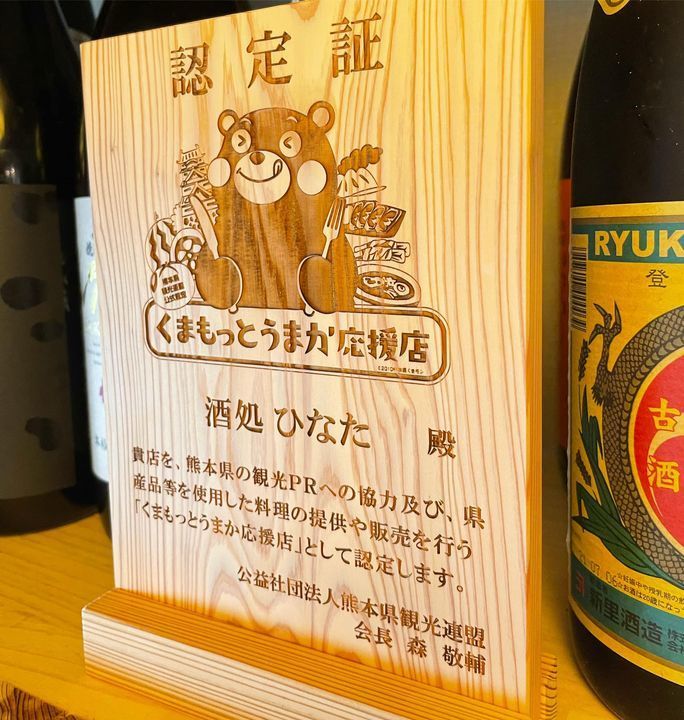 認定証
熊本県
観光連盟
公式認定
くまもっとうまか応援店
酒処 ひなた 殿
貴店を、熊本県の観光PRへの協力及び、県
産品等を使用した料理の提供や販売を行う
「くまもっとうまか応援店」として認定します。
公益社団法人熊本県観光連盟
会長 森 敬輔
RYUK
登
古
酒
☆妊娠中や授乳期の
☆お酒は20歳になっ
新里酒造